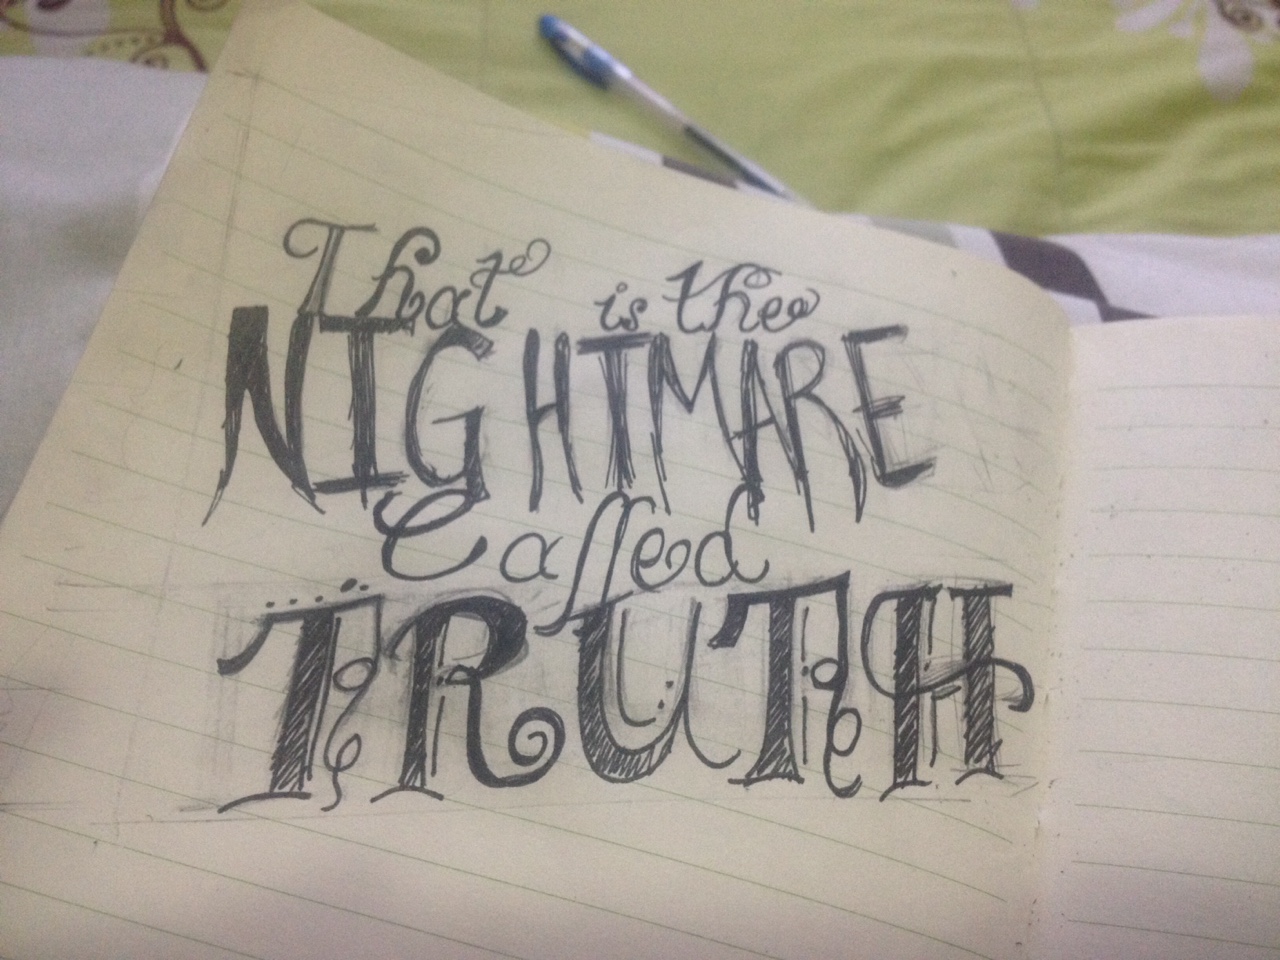 That is the
NIGHTMARE
Called
TRUTH